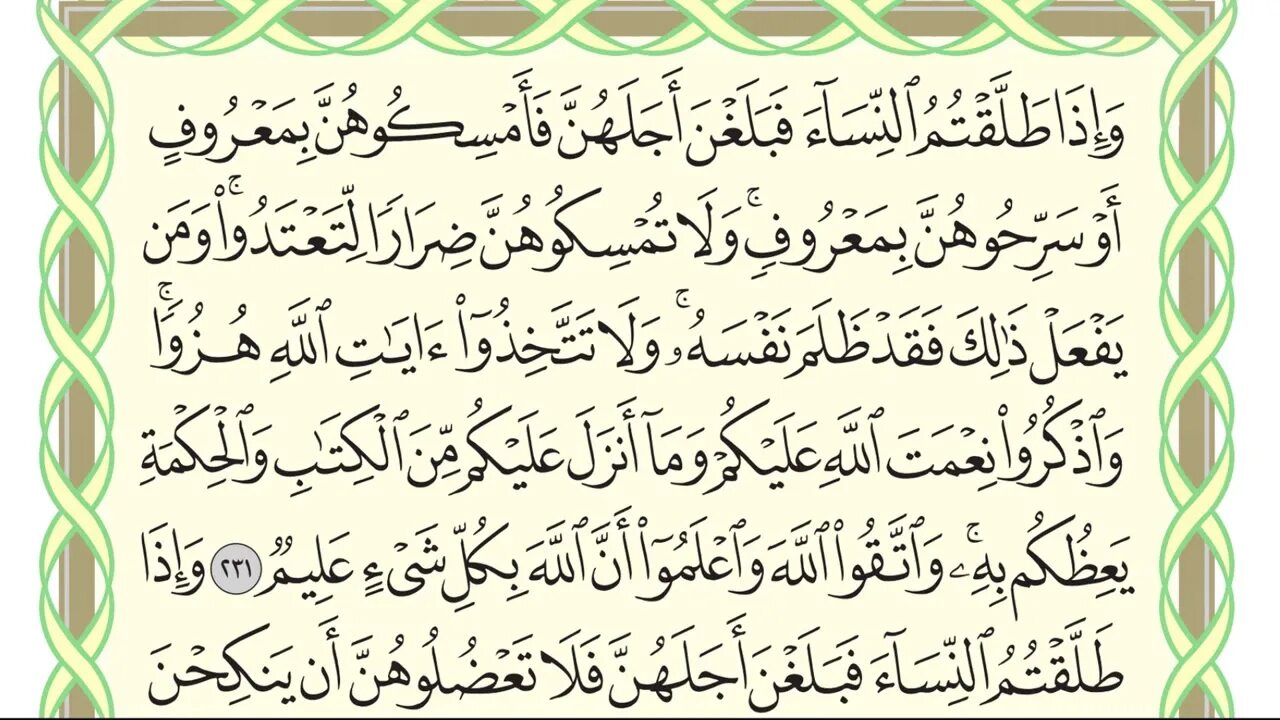 وَإِذَا طَلَّقۡتُمُ ٱلنِّسَآءَ فَبَلَغۡنَ أَجَلَهُنَّ فَأَمۡسِكُوهُنَّ بِمَعۡرُوفٍ
أَوۡ سَرِّحُوهُنَّ بِمَعۡرُوفٖۚ وَلَا تُمۡسِكُوهُنَّ ضِرَارٗا لِّتَعۡتَدُواْۚ وَمَن
يَفۡعَلۡ ذَٰلِكَ فَقَدۡ ظَلَمَ نَفۡسَهُۥۚ وَلَا تَتَّخِذُوٓاْ ءَايَٰتِ ٱللَّهِ هُزُوٗاۚ
وَٱذۡكُرُواْ نِعۡمَتَ ٱللَّهِ عَلَيۡكُمۡ وَمَآ أَنزَلَ عَلَيۡكُم مِّنَ ٱلۡكِتَٰبِ وَٱلۡحِكۡمَةِ
يَعِظُكُم بِهِۦۚ وَٱتَّقُواْ ٱللَّهَ وَٱعۡلَمُوٓاْ أَنَّ ٱللَّهَ بِكُلِّ شَيۡءٍ عَلِيمٞ ٢٣١ وَإِذَا
طَلَّقۡتُمُ ٱلنِّسَآءَ فَبَلَغۡنَ أَجَلَهُنَّ فَلَا تَعۡضُلُوهُنَّ أَن يَنكِحۡنَ